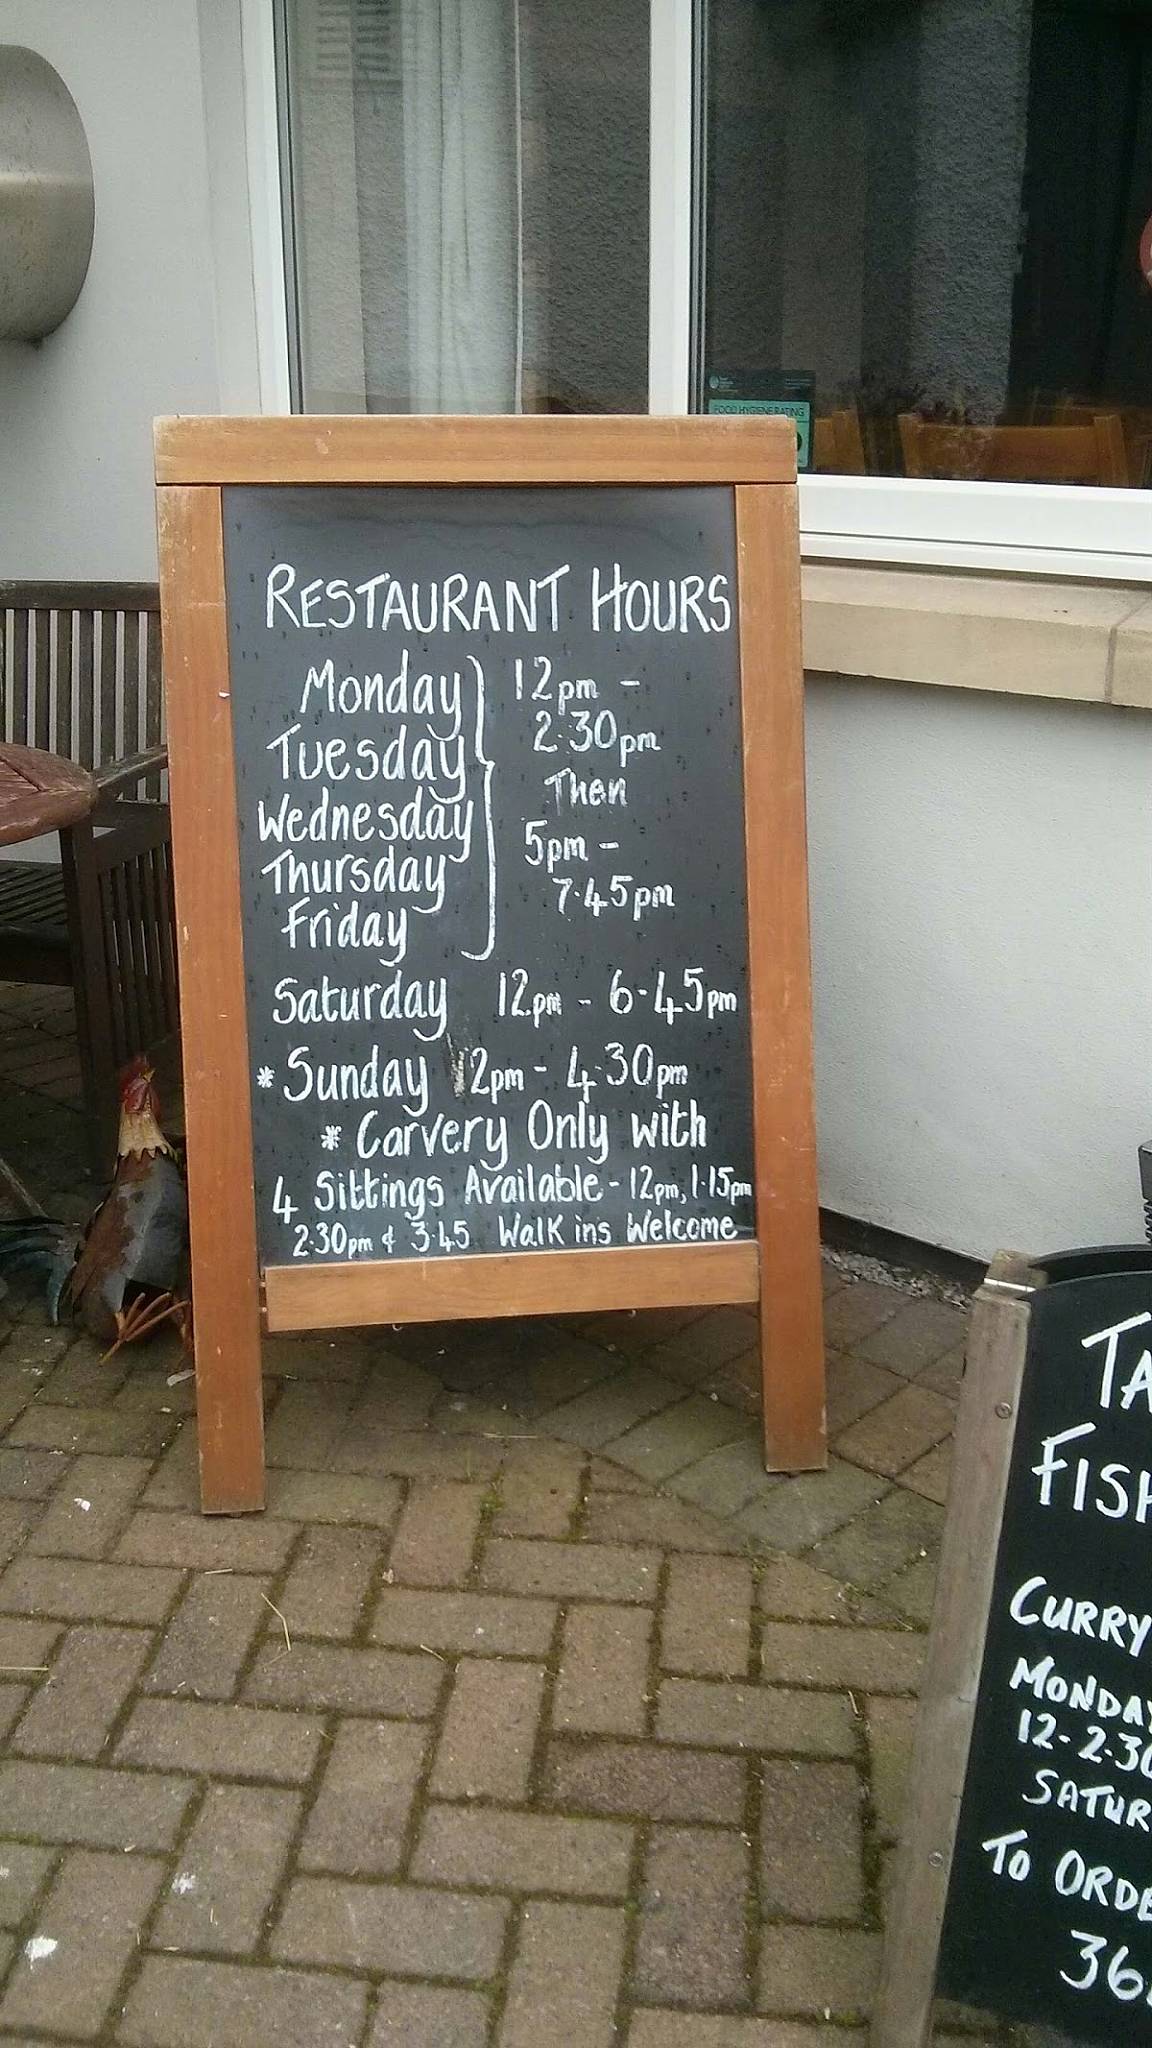 FOOD HYGIENE RATING
RESTAURANT HOURS
Monday
Tuesday
Wednesday
Thursday
Friday
12pm -
2.30pm
Then
5pm -
7.45pm
Saturday 12pm - 6.45pm
* Sunday 12pm - 4.30pm
* Carvery Only with
4 Sittings Available - 12pm, 1.15pm
2.30pm & 3.45 Walk ins Welcome
TA
FISH
CURRY
MONDAY
12-2.30
SATUR
TO ORDE
36